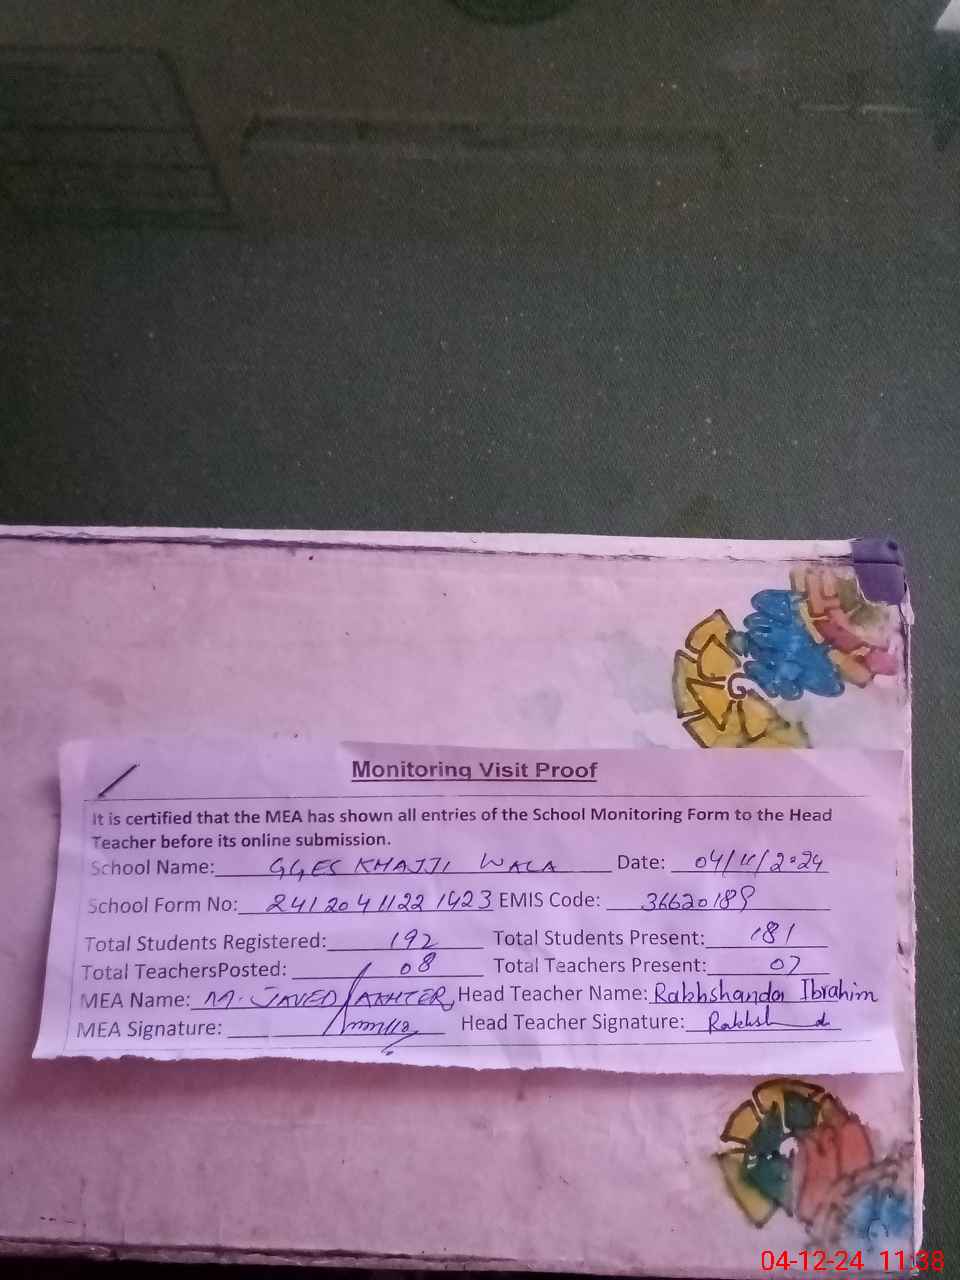 Monitoring Visit Proof
It is certified that the MEA has shown all entries of the School Monitoring Form to the Head
Teacher before its online submission.
School Name: GGES KHAJJI WALA Date: 04/12/2024
School Form No: 24120411221423 EMIS Code: 36620189
Total Students Registered: 192 Total Students Present: 181
Total TeachersPosted: 08 Total Teachers Present: 07
MEA Name: M. JAVED AKHTER Head Teacher Name: Rakhshanda Ibrahim
MEA Signature: Head Teacher Signature:
04-12-24 11:38